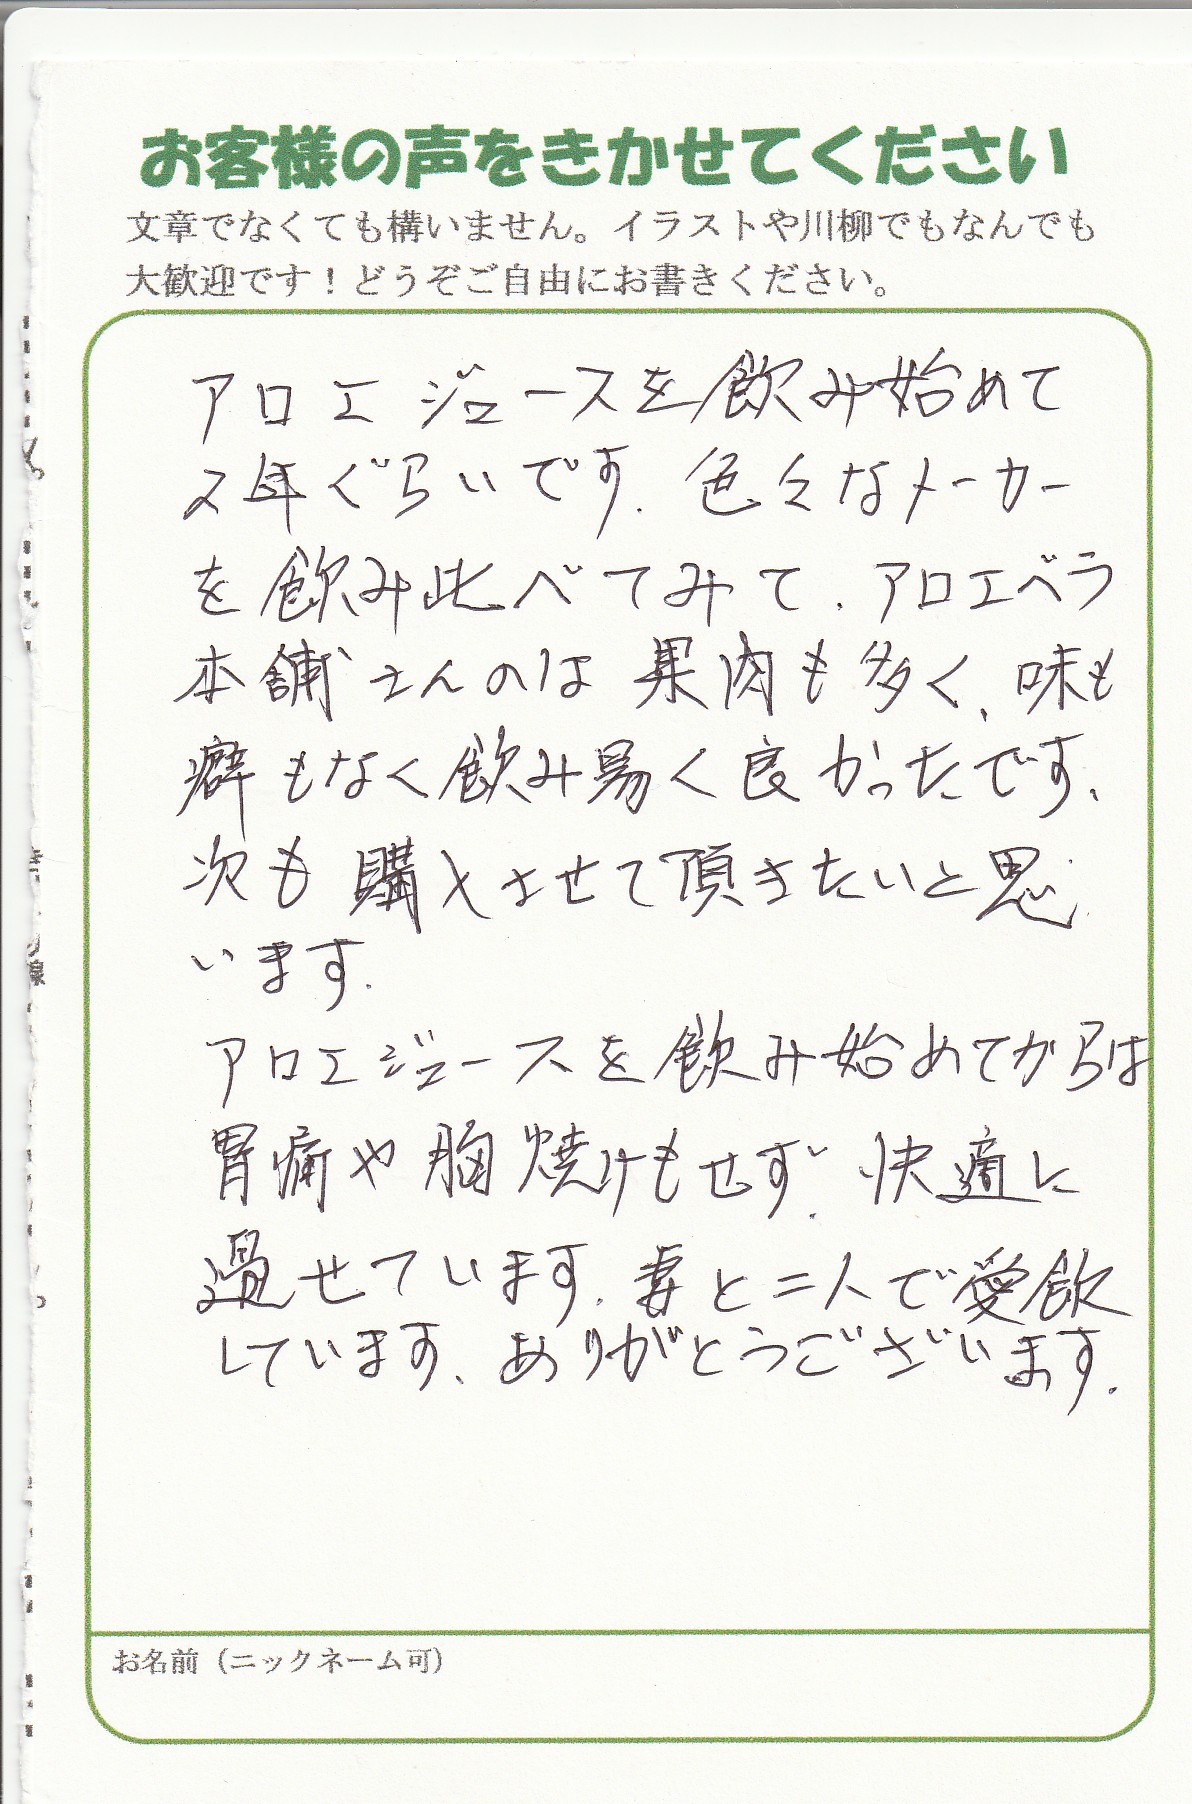 お客様の声をきかせてください
文章でなくても構いません。イラストや川柳でもなんでも
大歓迎です！どうぞご自由にお書きください。
アロエジュースを飲み始めて
2年ぐらいです。色々なメーカー
を飲み比べてみて、アロエベラ
本舗さんのは果肉も多く、味も
癖もなく飲み易く良かったです、
次も購入させて頂きたいと思
います。
アロエジュースを飲み始めてからは
胃痛や胸焼けもせず、快適に
過せています。妻と二人で愛飲
しています、ありがとうございます。
お名前（ニックネーム可）